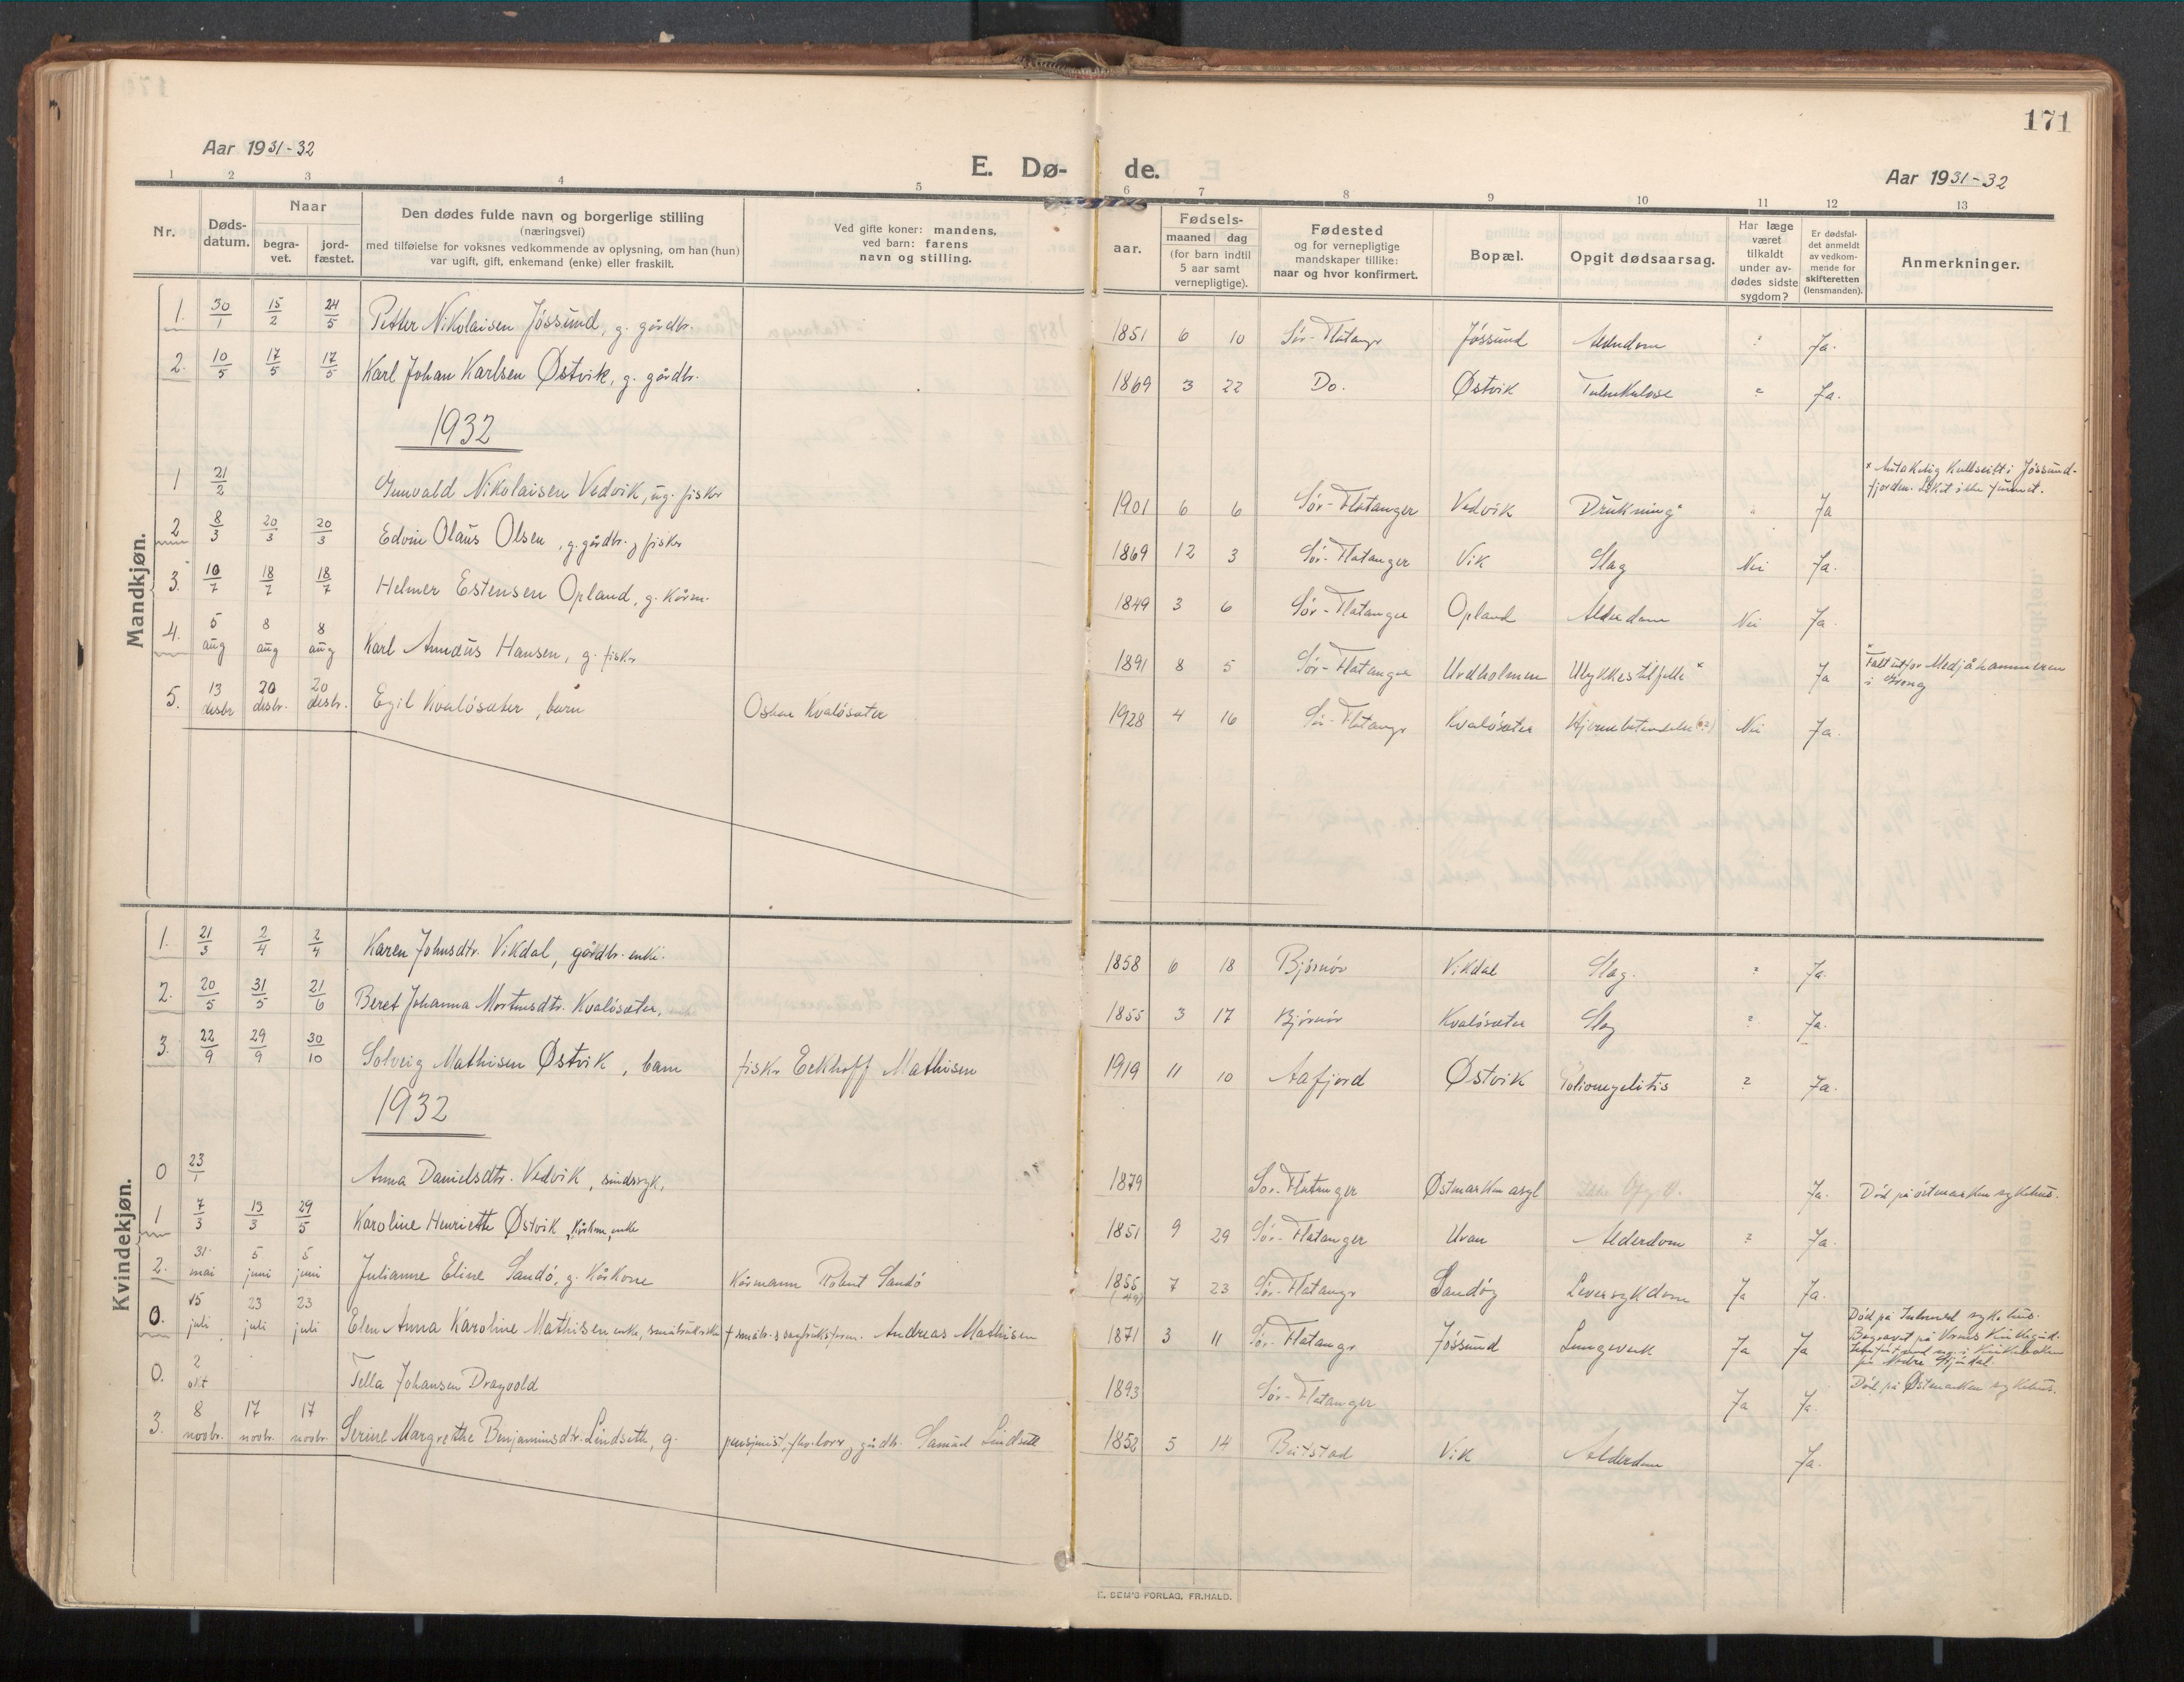 171
Aar 1931-32
E. Dø- de.
Aar 1931-32
1 2 3 4 5 6 7 8 9 10 11 12 13
Nr.
Døds-
datum.
Naar
begra-
vet.
jord-
fæstet.
Den dødes fulde navn og borgerlige stilling
(næringsvei)
med tilføielse for voksnes vedkommende av oplysning, om han (hun)
var ugift, gift, enkemand (enke) eller fraskilt.
Ved gifte koner: mandens,
ved barn: farens
navn og stilling.
Fødsels-
aar.
maaned dag
(for barn indtil
5 aar samt
vernepligtige).
Fødested
og for vernepligtige
mandskaper tillike:
naar og hvor konfirmert.
Bopæl.
Opgit dødsaarsag.
Har læge
været
tilkaldt
under av-
dødes sidste
sygdom?
Er dødsfal-
det anmeldt
av vedkom-
mende for
skifteretten
(lensmanden).
Anmerkninger.
Mandkjøn.
1. 30/1 15/2 24/5 Petter Nikolaisen Jøssund, g. gårdbr. 1851 6 10 Sør-Flatangr Jøssund Alderdom ? Ja.
2. 10/5 17/5 17/5 Karl Johan Karlsen Østvik, g. gårdbr. 1869 3 22 Do. Østvik Tuberkulose ? Ja.
1932
1 21/2 Gunvald Nikolaisen Vedvik, ug. fisker 1901 6 6 Sør-Flatanger Vedvik Drukning x Ja x Antakelig kullseilt i Jøssund-
fjorden. Liket ikke funnet.
2 8/3 20/3 20/3 Edvin Olaus Olsen, g. gårdbr. og fisker 1869 12 3 Sør-Flatanger Vik Slag Nei Ja.
3. 10/7 18/7 18/7 Helmer Estensen Opland, g. kårm. 1849 3 6 Sør-Flatanger Opland Alderdom Nei Ja.
4. 5 aug 8 aug 8 aug Karl Amdus Hansen, g. fisker 1891 8 5 Sør-Flatanger Utvdholmen Ulykkestilfelle x Ja x Falt utfor Medjåhammeren
i
5. 13 desbr 20 desbr. 20 desbr. Egil Kvaløsæter, barn Oskar Kvaløsæter 1928 4 16 Sør-Flatangr Kvaløsæter Hjernebetendelse (?) Nei Ja.
Kvindekjøn.
1. 21/3 2/4 2/4 Karen Johnsdtr. Vikdal, gårdbr. enke. 1858 6 18 Bjørnør Vikdal Slag. ? Ja.
2. 20/5 31/5 21/6 Beret Johanna Mortensdtr. Kvaløsæter, 1855 3 17 Bjørnør Kvaløsæter Slag ? Ja.
3. 22/9 29/9 30/10 Solveig Mathisen Østvik, barn fisker Eckhoff Mathisen 1919 11 10 Aafjord Østvik Poliomyelitis ? Ja.
1932
0 23/1 Anna Danielsdtr. Vedvik, sindssyk, 1879 Sør-Flatanger Østmarken asyl Ja. Død på Østmarken sykehus.
1 7/3 13/3 29/5 Karoline Henriette Østvik, enke 1851 9 29 Sør-Flatanger Uran Alderdom ? Ja.
2. 31 mai 5 juni 5 juni Julianne Eline Sandø, g. kårkone Kårmann Sandø 1855 7 23 Sør-Flatangr Sandøy Leversykdom Ja Ja.
0. 15 juli 23 juli 23 juli Elen Anna Karoline Mathisen enke, Andreas Mathisen 1871 3 11 Sør-Flatangr Jøssund Lungesvulst Ja Ja Død på Innherred sykehus.
Begravet på
på Nedre Stjørdal.
0. 2 okt Tella Johansen Dragvold 1893 Sør-Flatanger Ja Ja. Død på Østmarken sykehus.
3. 8 novbr. 17 novbr. 17 novbr. Serine Margrethe Benjaminsdtr. Lindseth, g. pensjonist, gårdbr. Samuel Lindseth 1852 5 14 Beitstad Vik Alderdom Ja.
E. SEM'S FORLAG, FR.HALD.